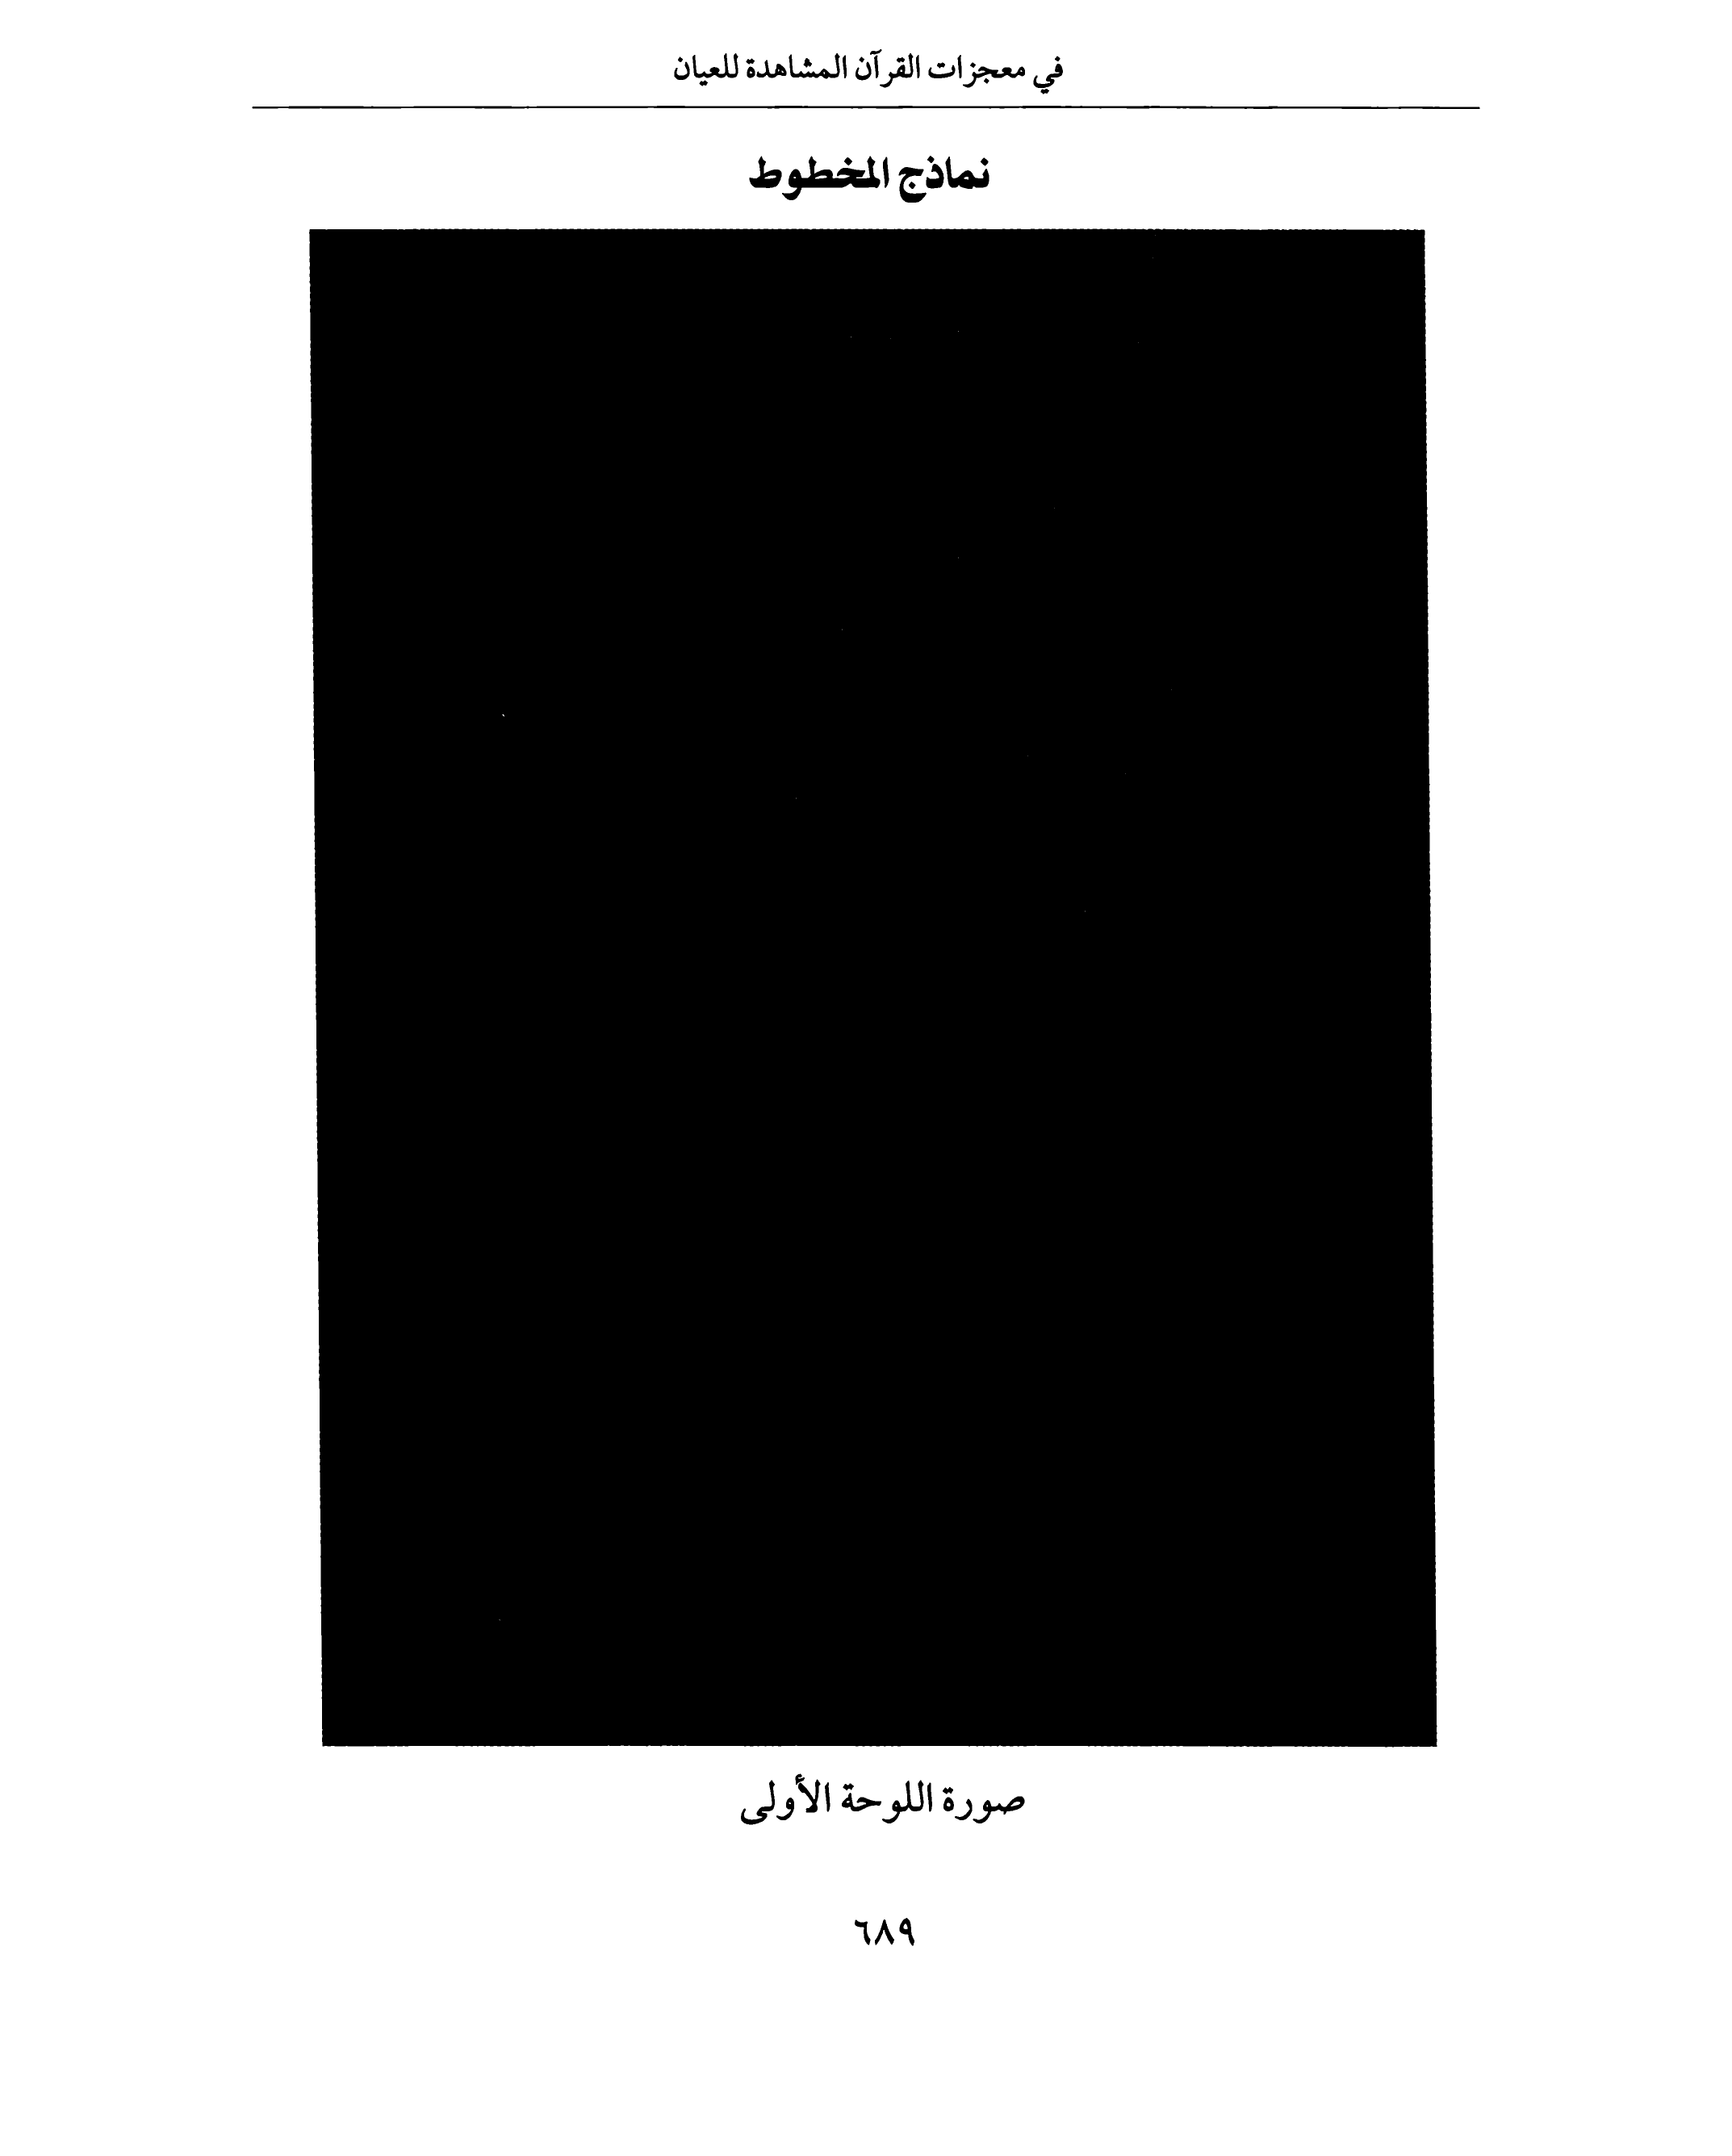 في معجزات القرآن المشاهدة للعيان
نماذج المخطوط
صورة اللوحة الأولى
٦٨٩